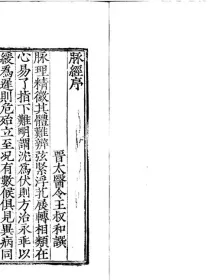 脉經序
晋太醫令王叔和譔
脉理精微其體難辨弦緊浮芤展轉相類在
心易了指下難明謂沈爲伏則方治永乖以
緩爲遲則危殆立至况有數候俱見異病同